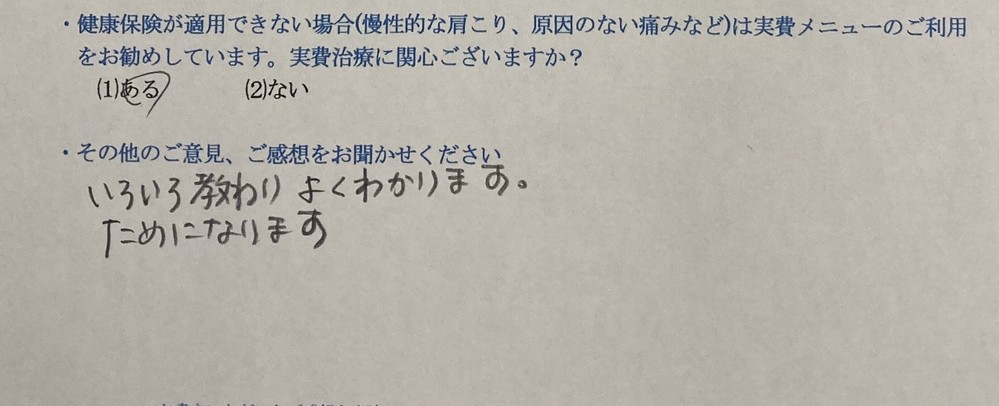 ・健康保険が適用できない場合(慢性的な肩こり、原因のない痛みなど)は実費メニューのご利用
をお勧めしています。実費治療に関心ございますか?
(1)ある (2)ない
・その他のご意見、ご感想をお聞かせください
いろいろ教わり よくわかります。
ためになります